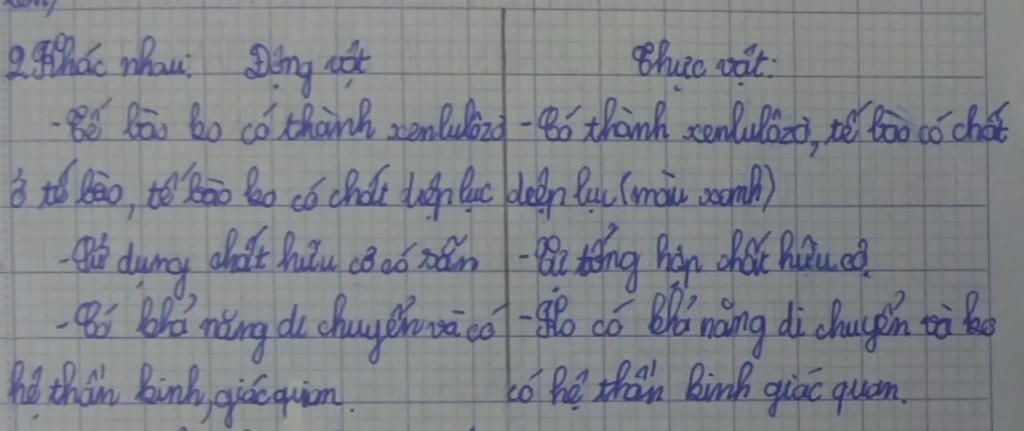 2. Khác nhau: Động vật Thực vật:
- Tế bào ko có thành xenlulôzơ - Có thành xenlulôzơ, tế bào có chất
ở tế bào, tế bào ko có chất diệp lục diệp lục (màu xanh)
- Sử dụng chất hữu cơ có sẵn - Tự tổng hợp chất hữu cơ.
- Có khả năng di chuyển và có - Ko có khả năng di chuyển và ko
hệ thần kinh, giác quan. có hệ thần kinh giác quan.